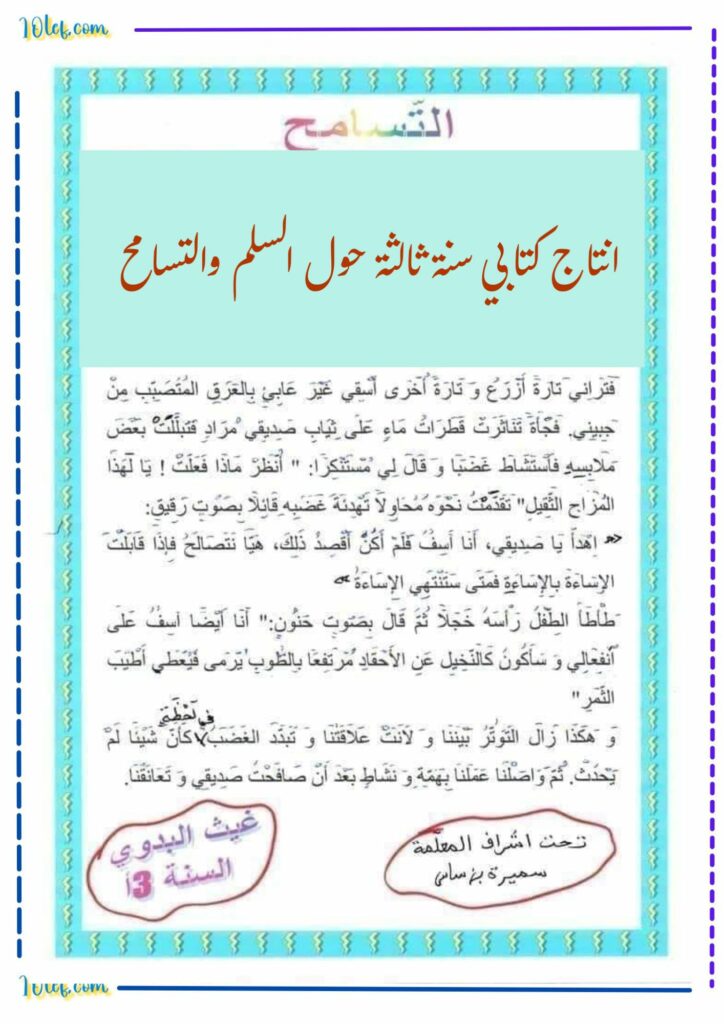 10lef.com
التّسامح
انتاج كتابي سنة ثالثة حول السلم والتسامح
فَتَراني تارَةً أَزْرَعُ وَ تارَةً أُخْرى أَسْقِي غَيْرَ عابِئٍ بِالعَرَقِ المُتَصَبِّبِ مِنْ
جَبيني. فَجْأَةً تَناثَرَتْ قَطَراتُ ماءٍ عَلَى ثِيابِ صَديقي مُرَادٍ فَتَبَلَّلَتْ بَعْضُ
مَلابِسِهِ فَاسْتَشَاطَ غَضَبًا وَ قَالَ لِي مُسْتَنْكِرًا: " أُنْظُرْ مَاذَا فَعَلْتَ ! يَا لَهَذَا
المُزَاحِ الثَّقِيلِ" تَقَدَّمْتُ نَحْوَهُ مُحَاوِلاً تَهْدِئَةَ غَضَبِهِ قَائِلاً بِصَوْتٍ رَقِيقٍ:
«اِهْدَأْ يَا صَدِيقِي، أَنَا آسِفُ فَلَمْ أَكُنْ أَقْصِدُ ذَلِكَ، هَيَّا نَتَصَالَحُ فَإِذَا قَابَلْتَ
الإِسَاءَةَ بِالإِسَاءَةِ فَمَتَى سَتَنْتَهِي الإِسَاءَةُ»
طَأْطَأَ الطِّفْلُ رَأْسَهُ خَجَلاً ثُمَّ قَالَ بِصَوْتٍ حَنُونٍ:" أَنَا أَيْضًا آسِفُ عَلَى
اَنْفِعَالِي وَ سَأَكُونُ كَالنَّخِيلِ عَنِ الأَحْقَادِ مُرْتَفِعًا بِالطُّوبِ يُرْمَى فَيُعْطِي أَطْيَبَ
الثَّمَرِ "
وَ هَكَذَا زَالَ التَوَتُّرُ بَيْنَنَا وَ لَانَتْ عَلَاقَتُنَا وَ تَبَدَّدَ الغَضَبُ في لَحْظَةٍ كَأَنَّ شَيْئًا لَمْ
يَحْدُثْ. ثُمَّ وَاصَلْنَا عَمَلَنَا بِهِمَّةٍ وَ نَشَاطٍ بَعْدَ أَنْ صَافَحْتُ صَدِيقِي وَ تَعَانَقْنَا.
تحت اشراف المعلّمة
سميرة بن ساسي
غيث البدوي
السنة 3أ
10lef.com